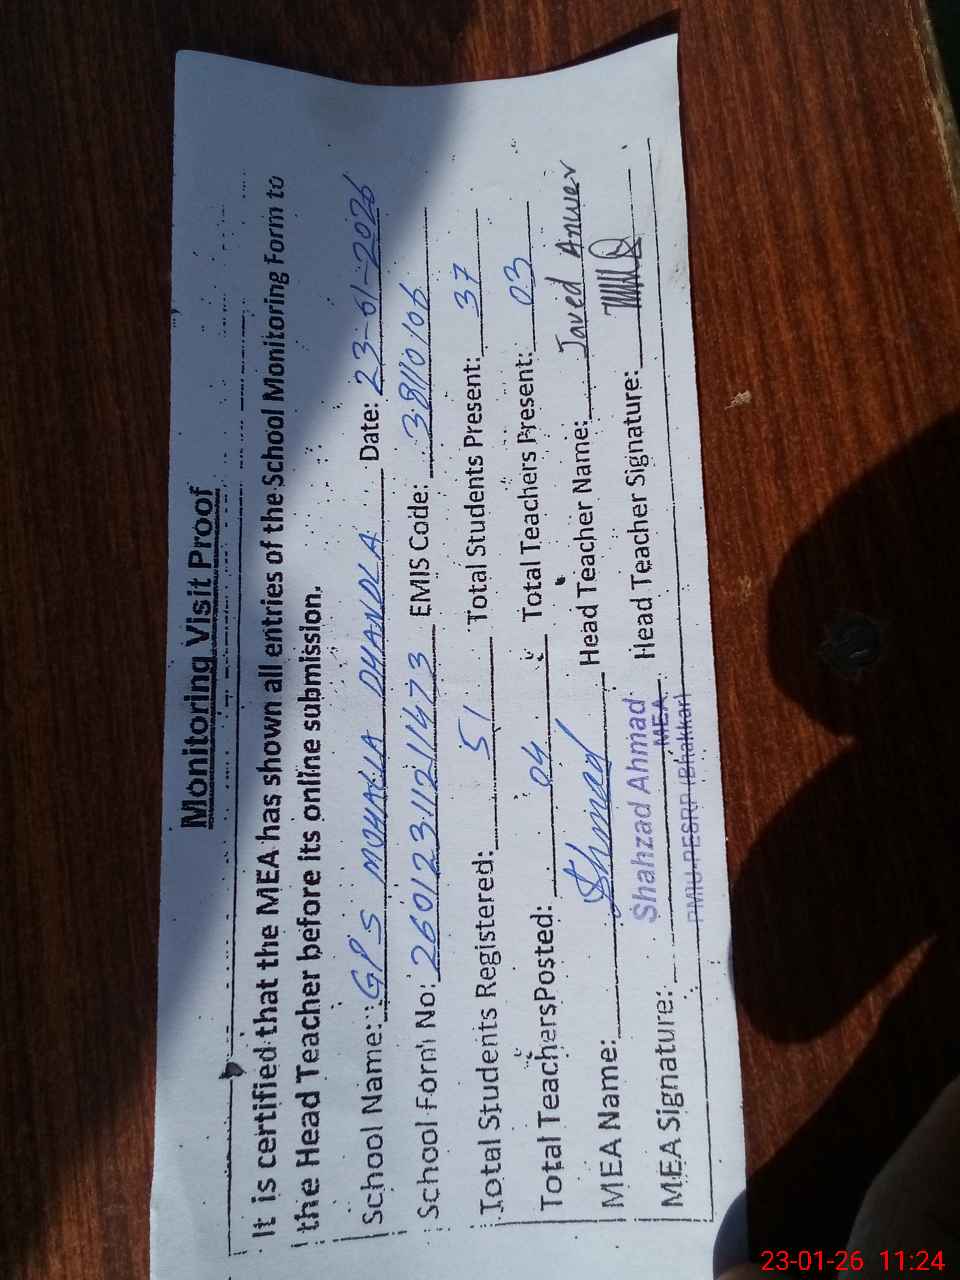 Monitoring Visit Proof
It is certified that the MEA has shown all entries of the School Monitoring Form to
the Head Teacher before its online submission.
School Name: GPS MOHALLA DHANDLA Date: 23-01-2026
School Form No: 260123112111473 EMIS Code: 38110106
Total Students Registered: 51 Total Students Present: 37
Total Teachers Posted: 04 Total Teachers Present: 03
MEA Name: Ahmad Head Teacher Name: Javed Anwer
MEA Signature: Head Teacher Signature:
Shahzad Ahmad
MEA
PMIU-PESRP (Bhakkar)
23-01-26 11:24